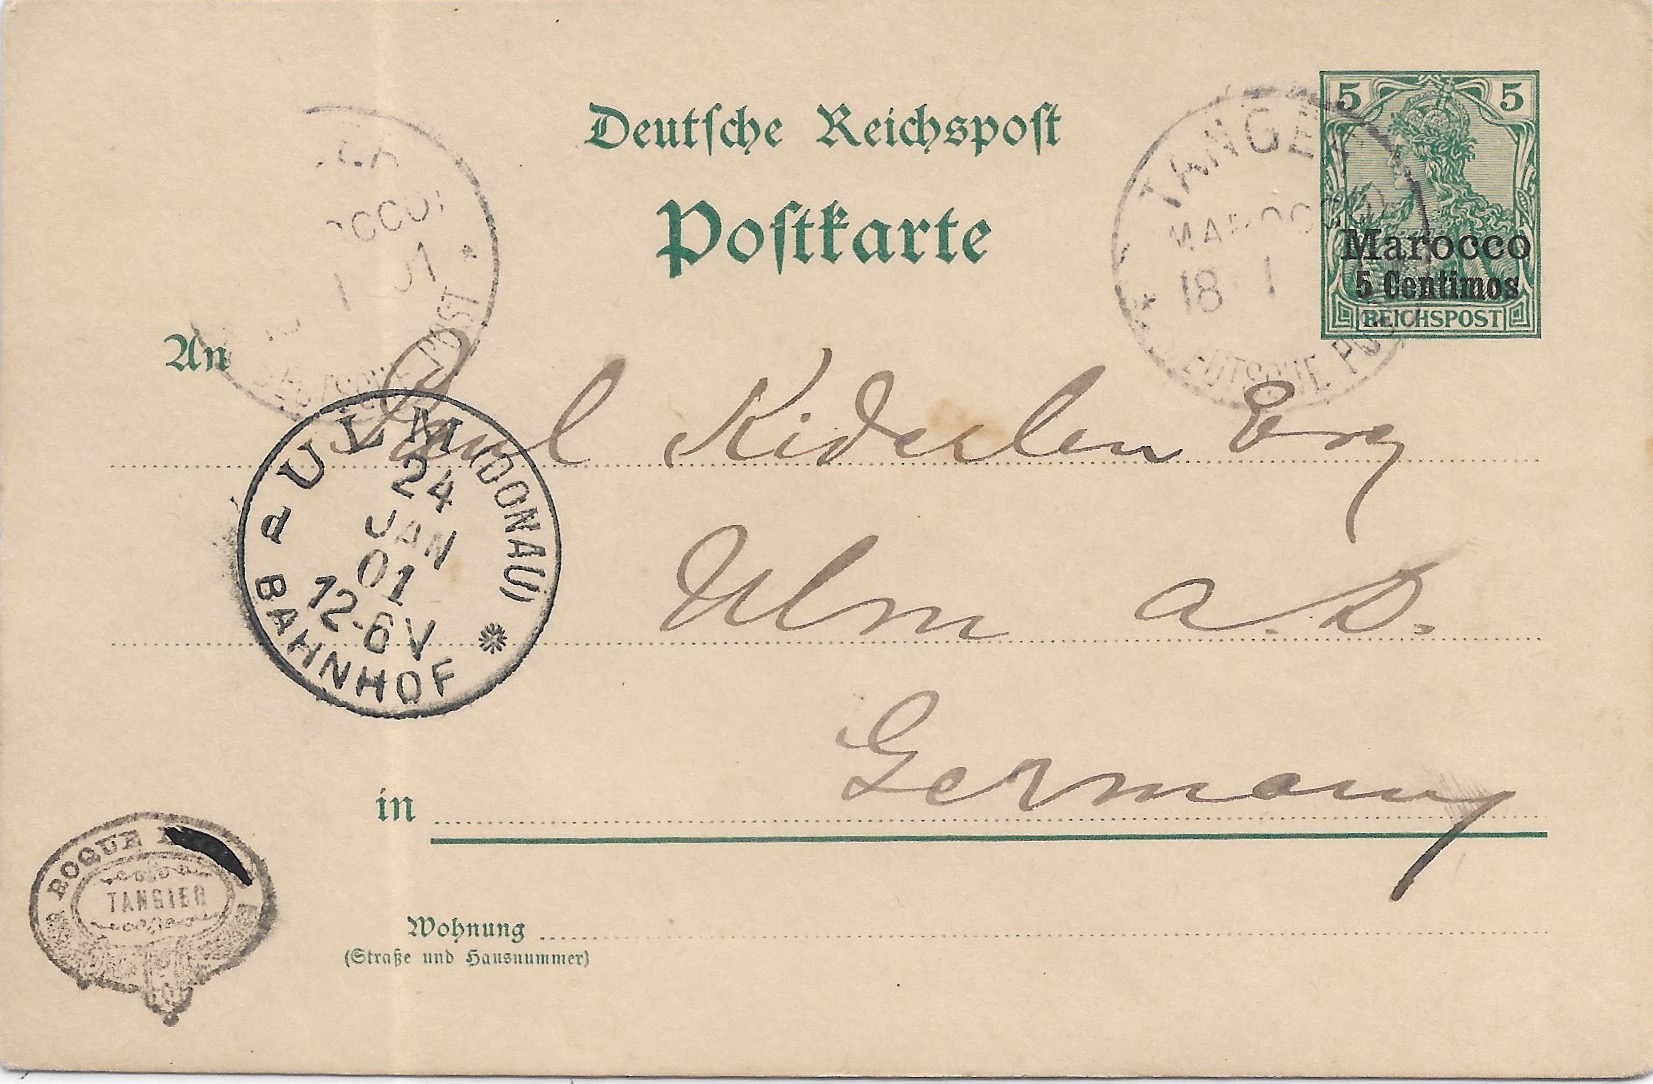 Deutsche Reichspost
Postkarte
5 5
Marocco
5 Centimos
REICHSPOST
TANGER
MAROCCO
18 1
DEUTSCHE POST
OCCO
1 01
POST
An Paul Kiderlen Esq
Ulm a. D.
Germany
ULM (DONAU)
24
JAN
01
12-6V
BAHNHOF
in
ROQUE
TANGIER
Wohnung
(Straße und Hausnummer)